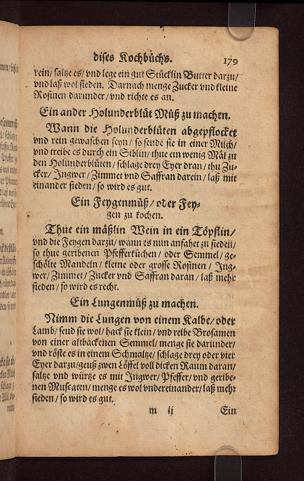 dises Kochbůchs. 179
rein/ saltze es/ vnd lege ein gut Stücklin Butter darzu/
vnd laß wol sieden. Darnach menge Zucker vnd kleine
Rosinen darunder/ vnd richte es an.
Ein ander Holunderblüt Můß zu machen.
Wann die Holunderblüten abgepflocket
vnd rein gewaschen seyn/ so seude sie in einer Milch/
vnd treibe es durch ein Siblin/ thue ein wenig Mäl zu
den Holunderblüten/ schlage drey Eyer dran/ thu Zu-
cker/ Ingwer/ Zimmet vnd Saffran darein/ laß mit
einander sieden/ so wird es gut.
Ein Feygenmůß/ oder Fey-
gen zu kochen.
Thue ein mäßlin Wein in ein Töpflin/
vnd die Feygen darzu/ wann es nun anfahet zu sieden/
so thue geribenen Pfefferküchen/ oder Semmel/ ge-
schölte Mandeln/ kleine oder grosse Rosinen/ Ing-
wer/ Zimmet/ Zucker vnd Saffran daran/ laß mehr
sieden/ so wird es recht.
Ein Lungenmůß zu machen.
Nimm die Lungen von einem Kalbe/ oder
Lamb/ seud sie wol/ hack sie klein/ vnd reibe Brosamen
von einer altbackenen Semmel/ menge sie darunder/
vnd röste es in einem Schmaltze/ schlage drey oder vier
Eyer darzu/ geuß zwen Löffel voll dicken Raum daran/
saltz vnd würtz es mit Ingwer/ Pfeffer/ vnd geribe-
nen Muscaten/ menge es wol vndereinander/ laß mehr
sieden/ so wird es gut.
m ij Ein